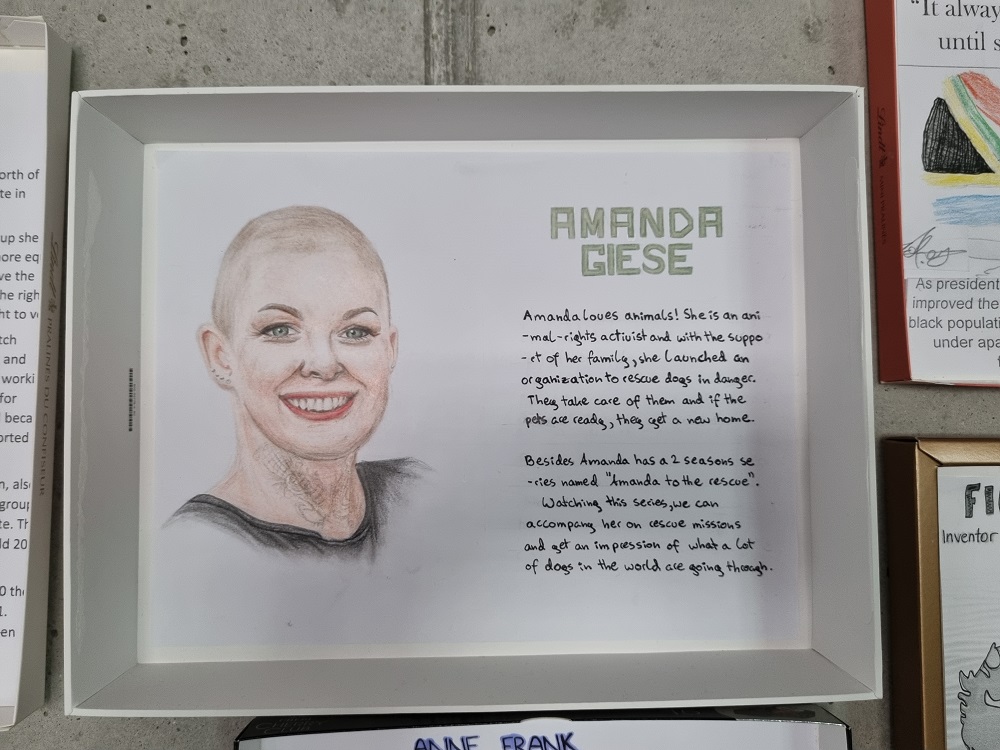 AMANDA
GIESE
Amanda loves animals! She is an ani
-mal-rights activist and with the suppo
-rt of her family, she launched an
organization to rescue dogs in danger.
They take care of them and if the
pets are ready, they get a new home.
Besides Amanda has a 2 seasons se
-ries named "Amanda to the rescue".
Watching this series, we can
accompany her on rescue missions
and get an impression of what a lot
of dogs in the world are going through.
orth of
te in
up she
ore eq
ve the
he righ
ht to v
tch
and
worki
for
beca
orted
n, als
group
te. Th
ld 20
0 th
1.
en
Lindt PRALINES DU CONFISEUR
"It alway
until s
Lindt
As president
improved the
black populati
under apa
FI
Inventor
ANNE FRANK